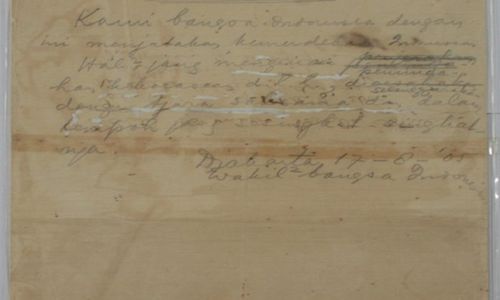 Kami bangsa Indonesia dengan
ini menjatakan kemerdekaan Indonesia
Hal2 jang mengenai
kekoeasaan d.l.l.,
dengan tjara saksama dan dalam
tempoh jang sesingkat singkat
nja.
Djakarta 17 - 8 - '05
Wakil2 bangsa Indonesia